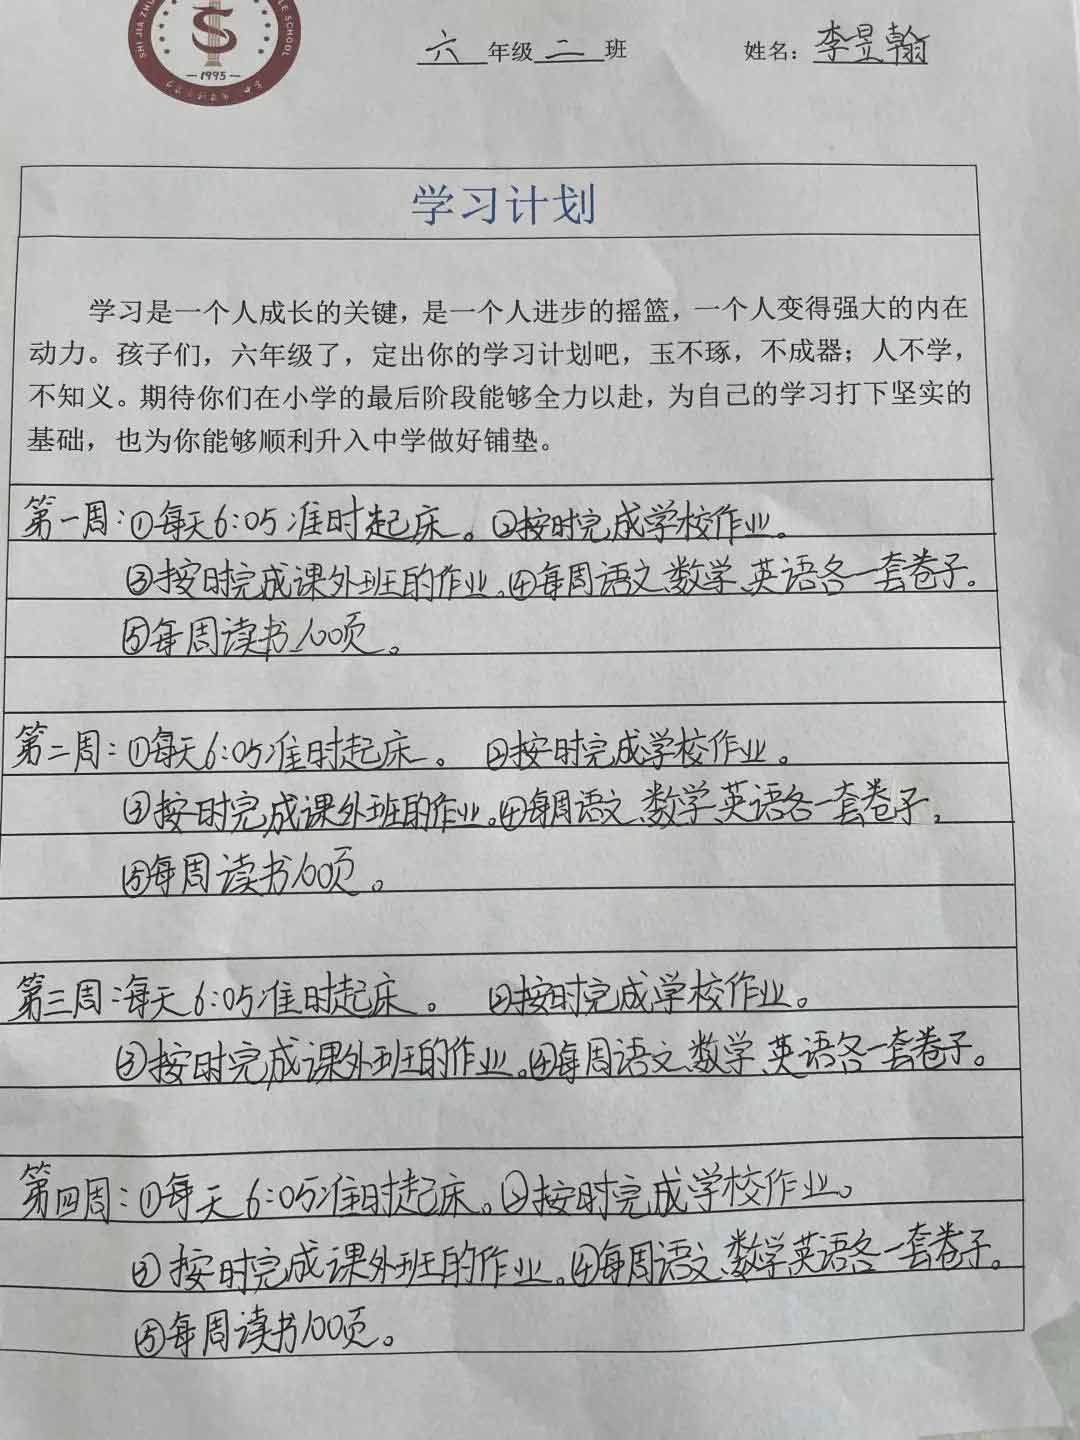 SHI JIA ZHU
LE SCHOOL
S
1995
六 年级 二 班 姓名：李昱翰
学习计划
学习是一个人成长的关键，是一个人进步的摇篮，一个人变得强大的内在
动力。孩子们，六年级了，定出你的学习计划吧，玉不琢，不成器；人不学，
不知义。期待你们在小学的最后阶段能够全力以赴，为自己的学习打下坚实的
基础，也为你能够顺利升入中学做好铺垫。
第一周：①每天6:05准时起床。②按时完成学校作业。
③按时完成课外班的作业。④每周语文、数学、英语各一套卷子。
⑤每周读书100页。
第二周：①每天6:05准时起床。②按时完成学校作业。
③按时完成课外班的作业。④每周语文、数学、英语各一套卷子，
⑤每周读书100页。
第三周：每天6:05准时起床。②按时完成学校作业。
③按时完成课外班的作业。④每周语文、数学、英语各一套卷子。
第四周：①每天6:05准时起床。②按时完成学校作业。
③按时完成课外班的作业。④每周语文、数学英语各一套卷子。
⑤每周读书100页。